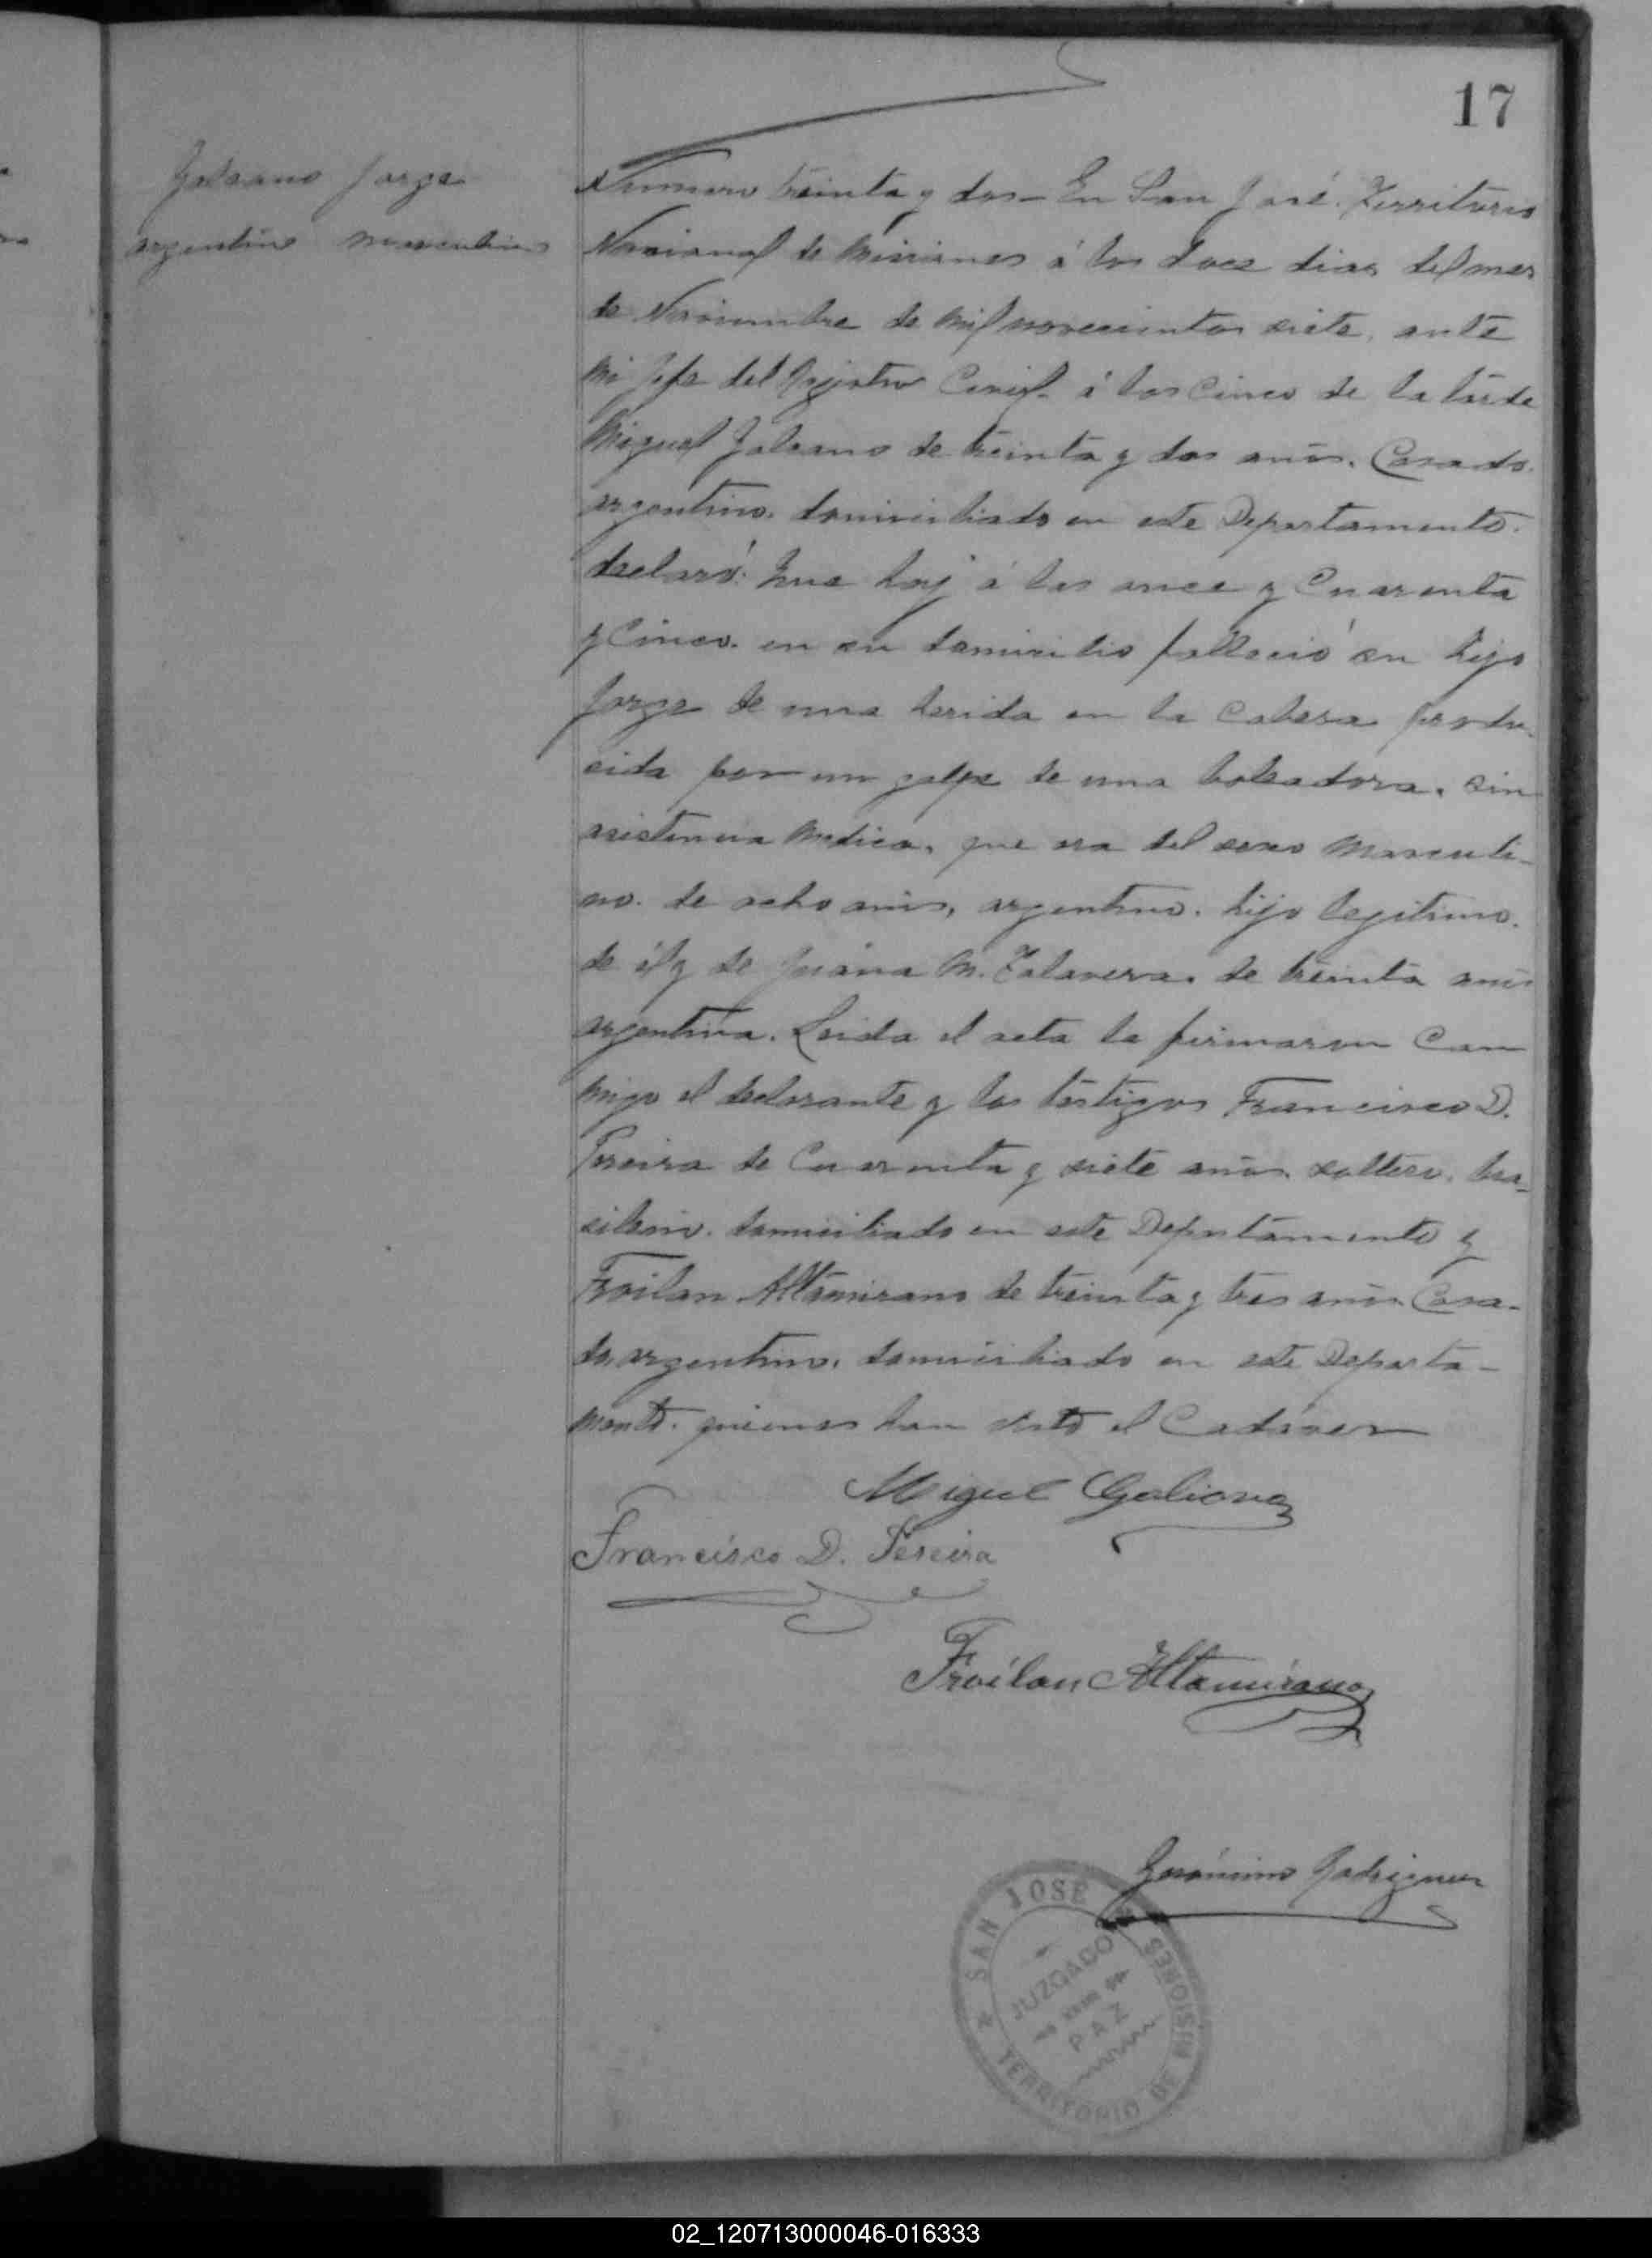 17
Galeano Jorge
argentino masculino
Numero treinta y dos - En San José. Territorio
Nacional de Misiones á los doce dias del mes
de Noviembre de mil novecientos siete, ante
mi Jefe del Registro Civil á las cinco de la tarde
Miguel Galeano de treinta y dos años. Casado.
argentino. domiciliado en este Departamento.
declaró: Que hoy á las once y Cuarenta
y Cinco. en su domicilio falleció su hijo
Jorge de una herida en la Cabesa produ-
cida por un golpe de una boleadora. sin
asistencia Medica, que era del sexo Masculi-
no. de ocho años, argentino. hijo legitimo.
de él y de Juana M. Talavera. de treinta años
argentina. Leida el acta la firmaron Con
migo el declarante y los testigos Francisco D.
Pereira de Cuarenta y siete años. soltero. bra-
silero. domiciliado en este Departamento y
Froilan Altamirano de treinta y tres años Casa-
do, argentino. domiciliado en este Departa-
mento. quienes han visto el Cadaver
Miguel Galiano
Francisco D. Pereira
Froilan Altamirano
Gerónimo Rodriguez
SAN JOSE MISIONES
JUZGADO
PAZ
TERRITORIO DE
02_120713000046-016333